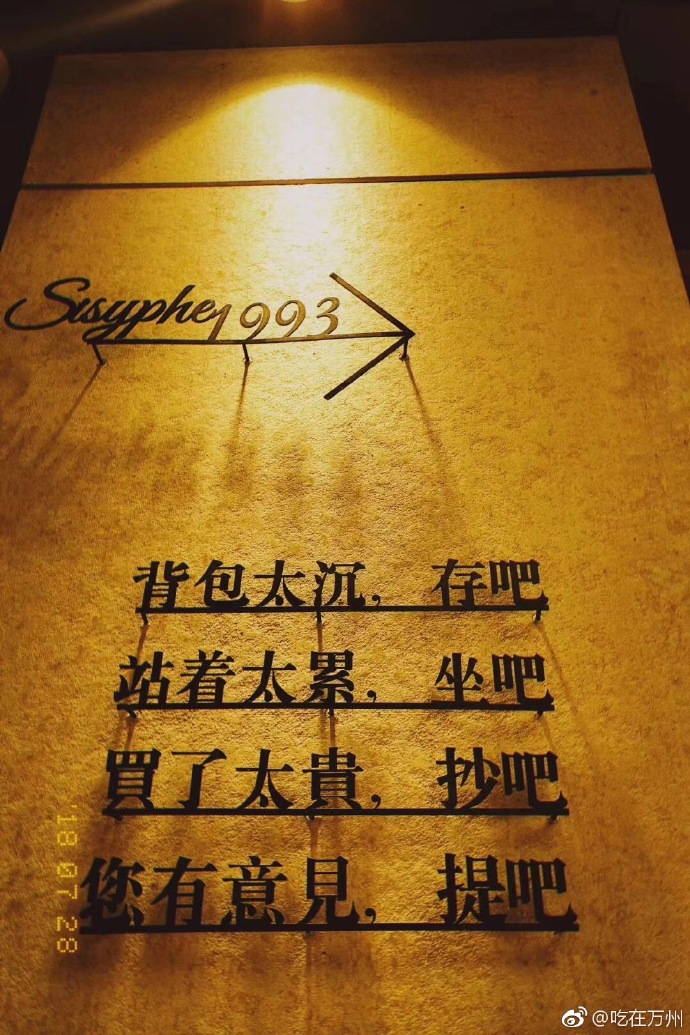 Sisyphe1993
背包太沉，存吧
站着太累，坐吧
買了太貴，抄吧
您有意見，提吧
'18 07 28
@吃在万州